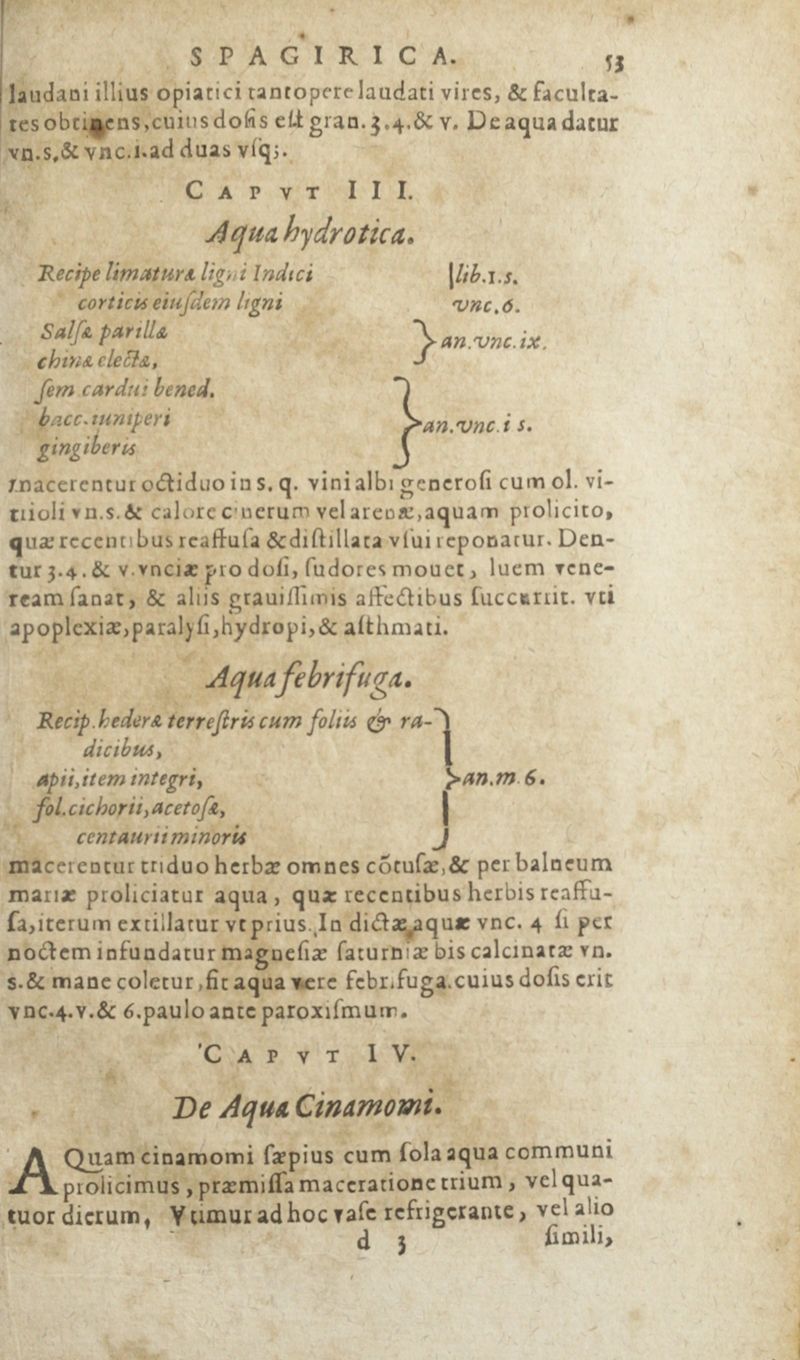 SPAGIRICA. 53
laudani illius opiatici tantopere laudati vires, & faculta-
tes obtinens, cuius dosis est gran. 3. 4. & v. De aqua datur
vn.s,& vnc.1.ad duas vsq;.
CAPVT III.
Aqua hydrotica.
Recipe limaturæ ligni Indici |lib.1.s.
corticis eiusdem ligni vnc.6.
Salsæ parillæ
chinæ electæ, } an.vnc.ix.
sem cardui bened.
bacc. iuniperi } an.vnc.i s.
gingiberis
macerentur octiduo in s. q. vini albi generosi cum ol. vi-
trioli vn.s. & calore cinerum vel arenæ, aquam prolicito,
quæ recentibus reaffusa & distillata vsui reponatur. Den-
tur 3.4. & v. vnciæ pro dosi, sudores mouet, luem vene-
ream sanat, & aliis grauissimis affectibus succurrit. vti
apoplexiæ, paralysi, hydropi, & asthmati.
Aqua febrifuga.
Recip. hederæ terrestris cum foliis & ra-
dicibus,
apii, item integri, } an.m.6.
fol. cichorii, acetosæ,
centaurii minoris
macerentur triduo herbæ omnes cōtusæ, & per balneum
mariæ proliciatur aqua, quæ recentibus herbis reaffu-
sa, iterum extillatur vt prius. In dictæ aquæ vnc. 4 si per
noctem infundatur magnesiæ saturniæ bis calcinatæ vn.
s. & mane coletur, fit aqua vere febrifuga. cuius dosis erit
vnc.4.v.& 6. paulo ante paroxismum.
CAPVT IV.
De Aqua Cinamomi.
AQuam cinamomi sæpius cum sola aqua communi
prolicimus, præmissa maceratione trium, vel qua-
tuor dierum, Vtimur ad hoc vase refrigerante, vel alio
d 3 simili,